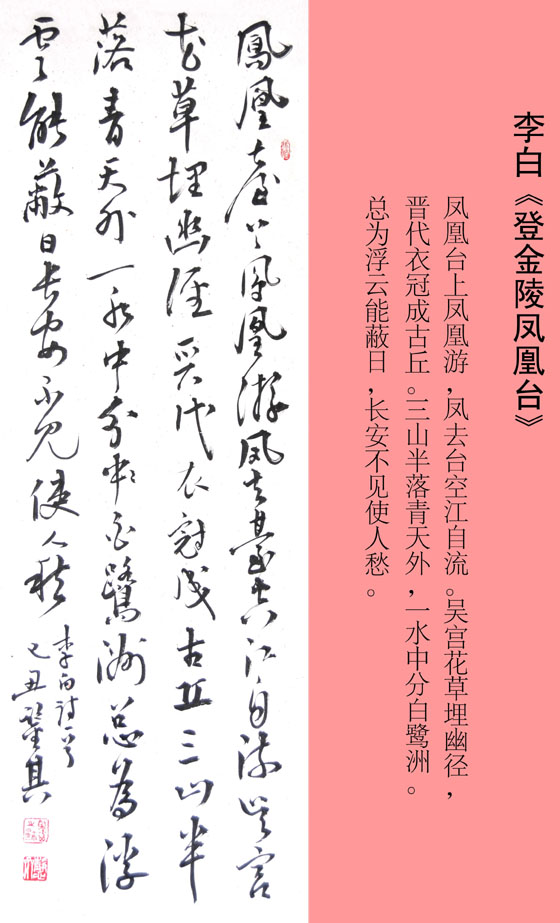 李白《登金陵凤凰台》
凤凰台上凤凰游,凤去台空江自流。吴宫花草埋幽径,
晋代衣冠成古丘。三山半落青天外,一水中分白鹭洲。
总为浮云能蔽日,长安不见使人愁。
鳳凰臺上鳳凰游鳳去臺空江自流吴宫
花草埋幽徑晋代衣冠成古丘三山半
落青天外一水中分白鷺洲总為浮
雲能蔽日長安不見使人愁
李白詩一首
己丑